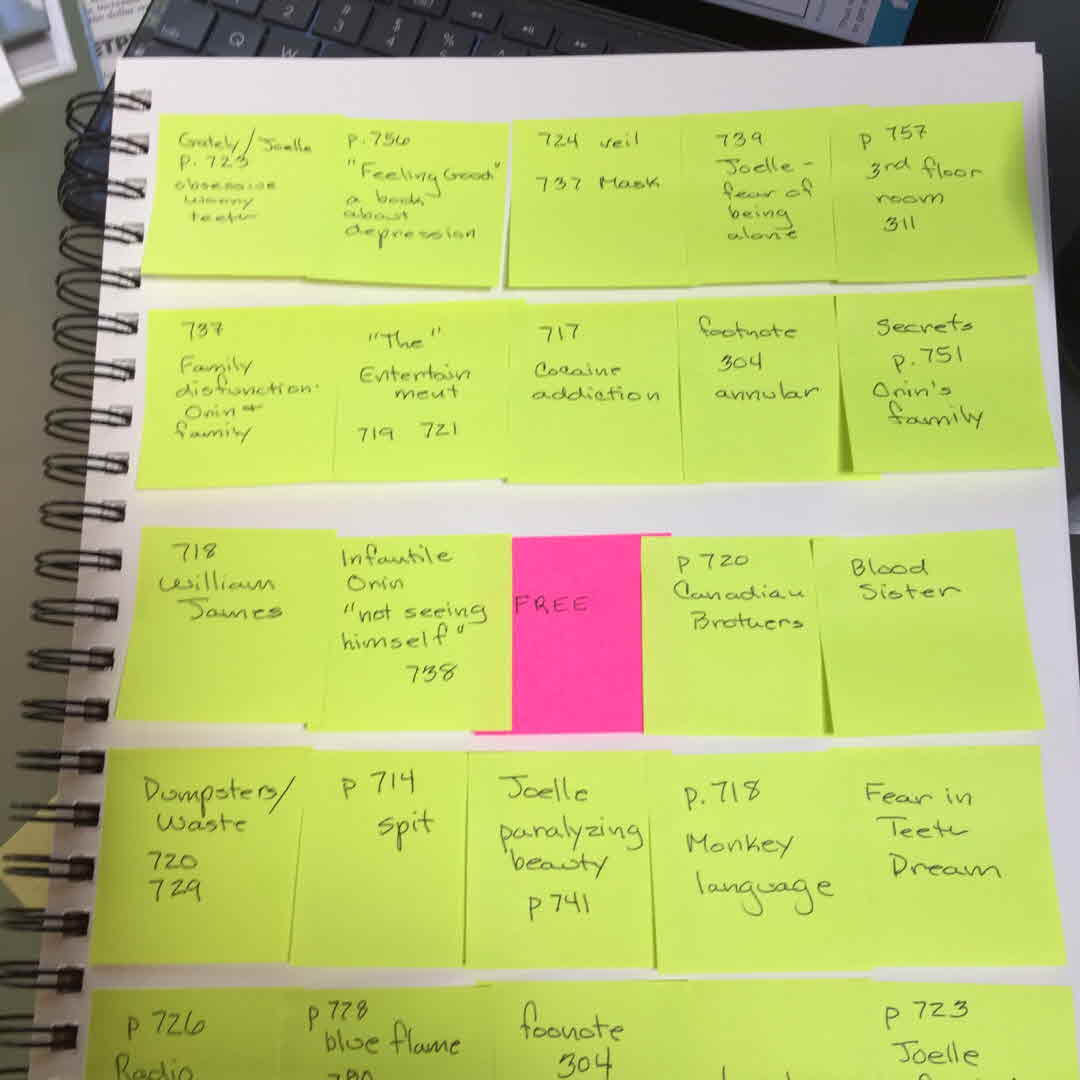 Gately/Joelle
P. 723
obsessive
worry
teeth
p. 756
"Feeling Good"
a book
about
depression
724 veil
737 Mask
739
Joelle -
fear of
being
alone
p 757
3rd floor
room
311
737
Family
disfunction
Orin +
family
"The"
Entertain
ment
719 721
717
Cocaine
addiction
footnote
304
annular
Secrets
p. 751
Orin's
family
718
William
James
Infantile
Orin
"not seeing
himself"
738
FREE
p 720
Canadian
Brothers
Blood
Sister
Dumpsters/
Waste
720
729
p 714
spit
Joelle
paralyzing
beauty
p 741
p. 718
Monkey
language
Fear in
Teeth
Dream
p 726
Radio
p 778
blue flame
foonote
304
p 723
Joelle